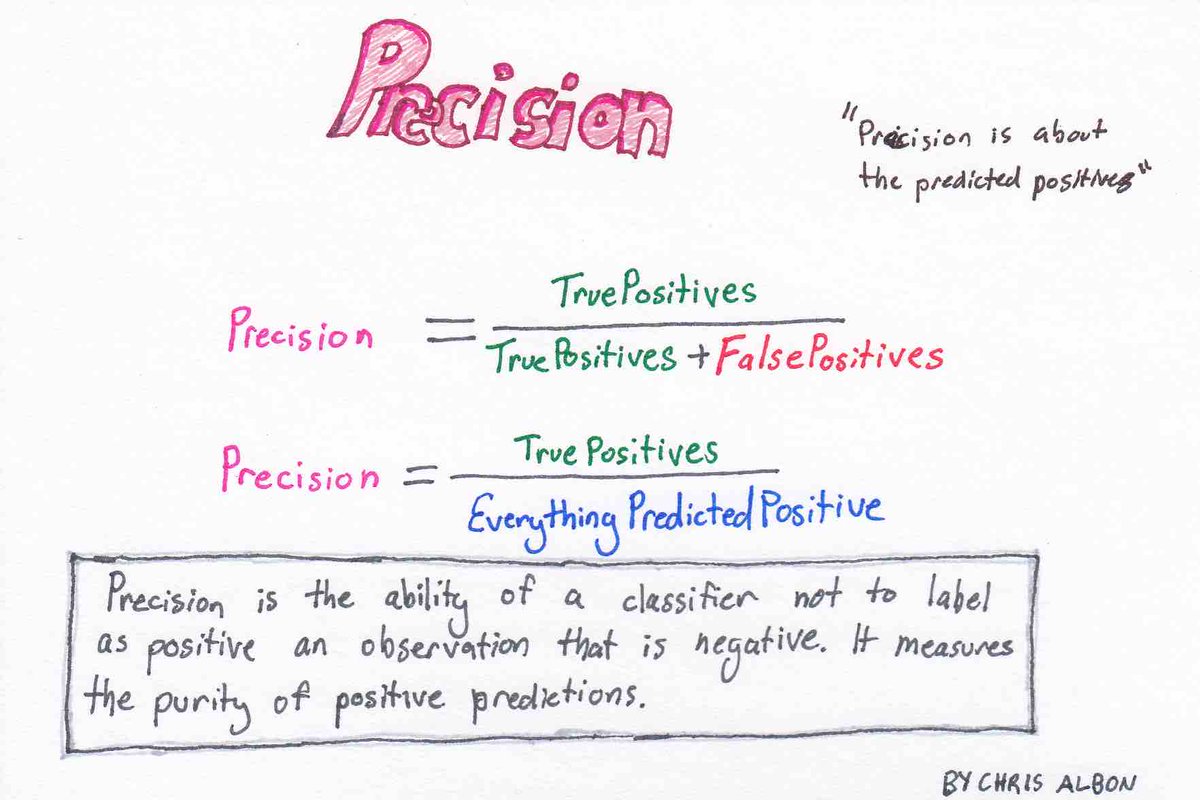 Precision
"Precision is about
the predicted positives"
TruePositives
Precision =
TruePositives + FalsePositives
True Positives
Precision =
Everything Predicted Positive
Precision is the ability of a classifier not to label
as positive an observation that is negative. It measures
the purity of positive predictions.
BY CHRIS ALBON